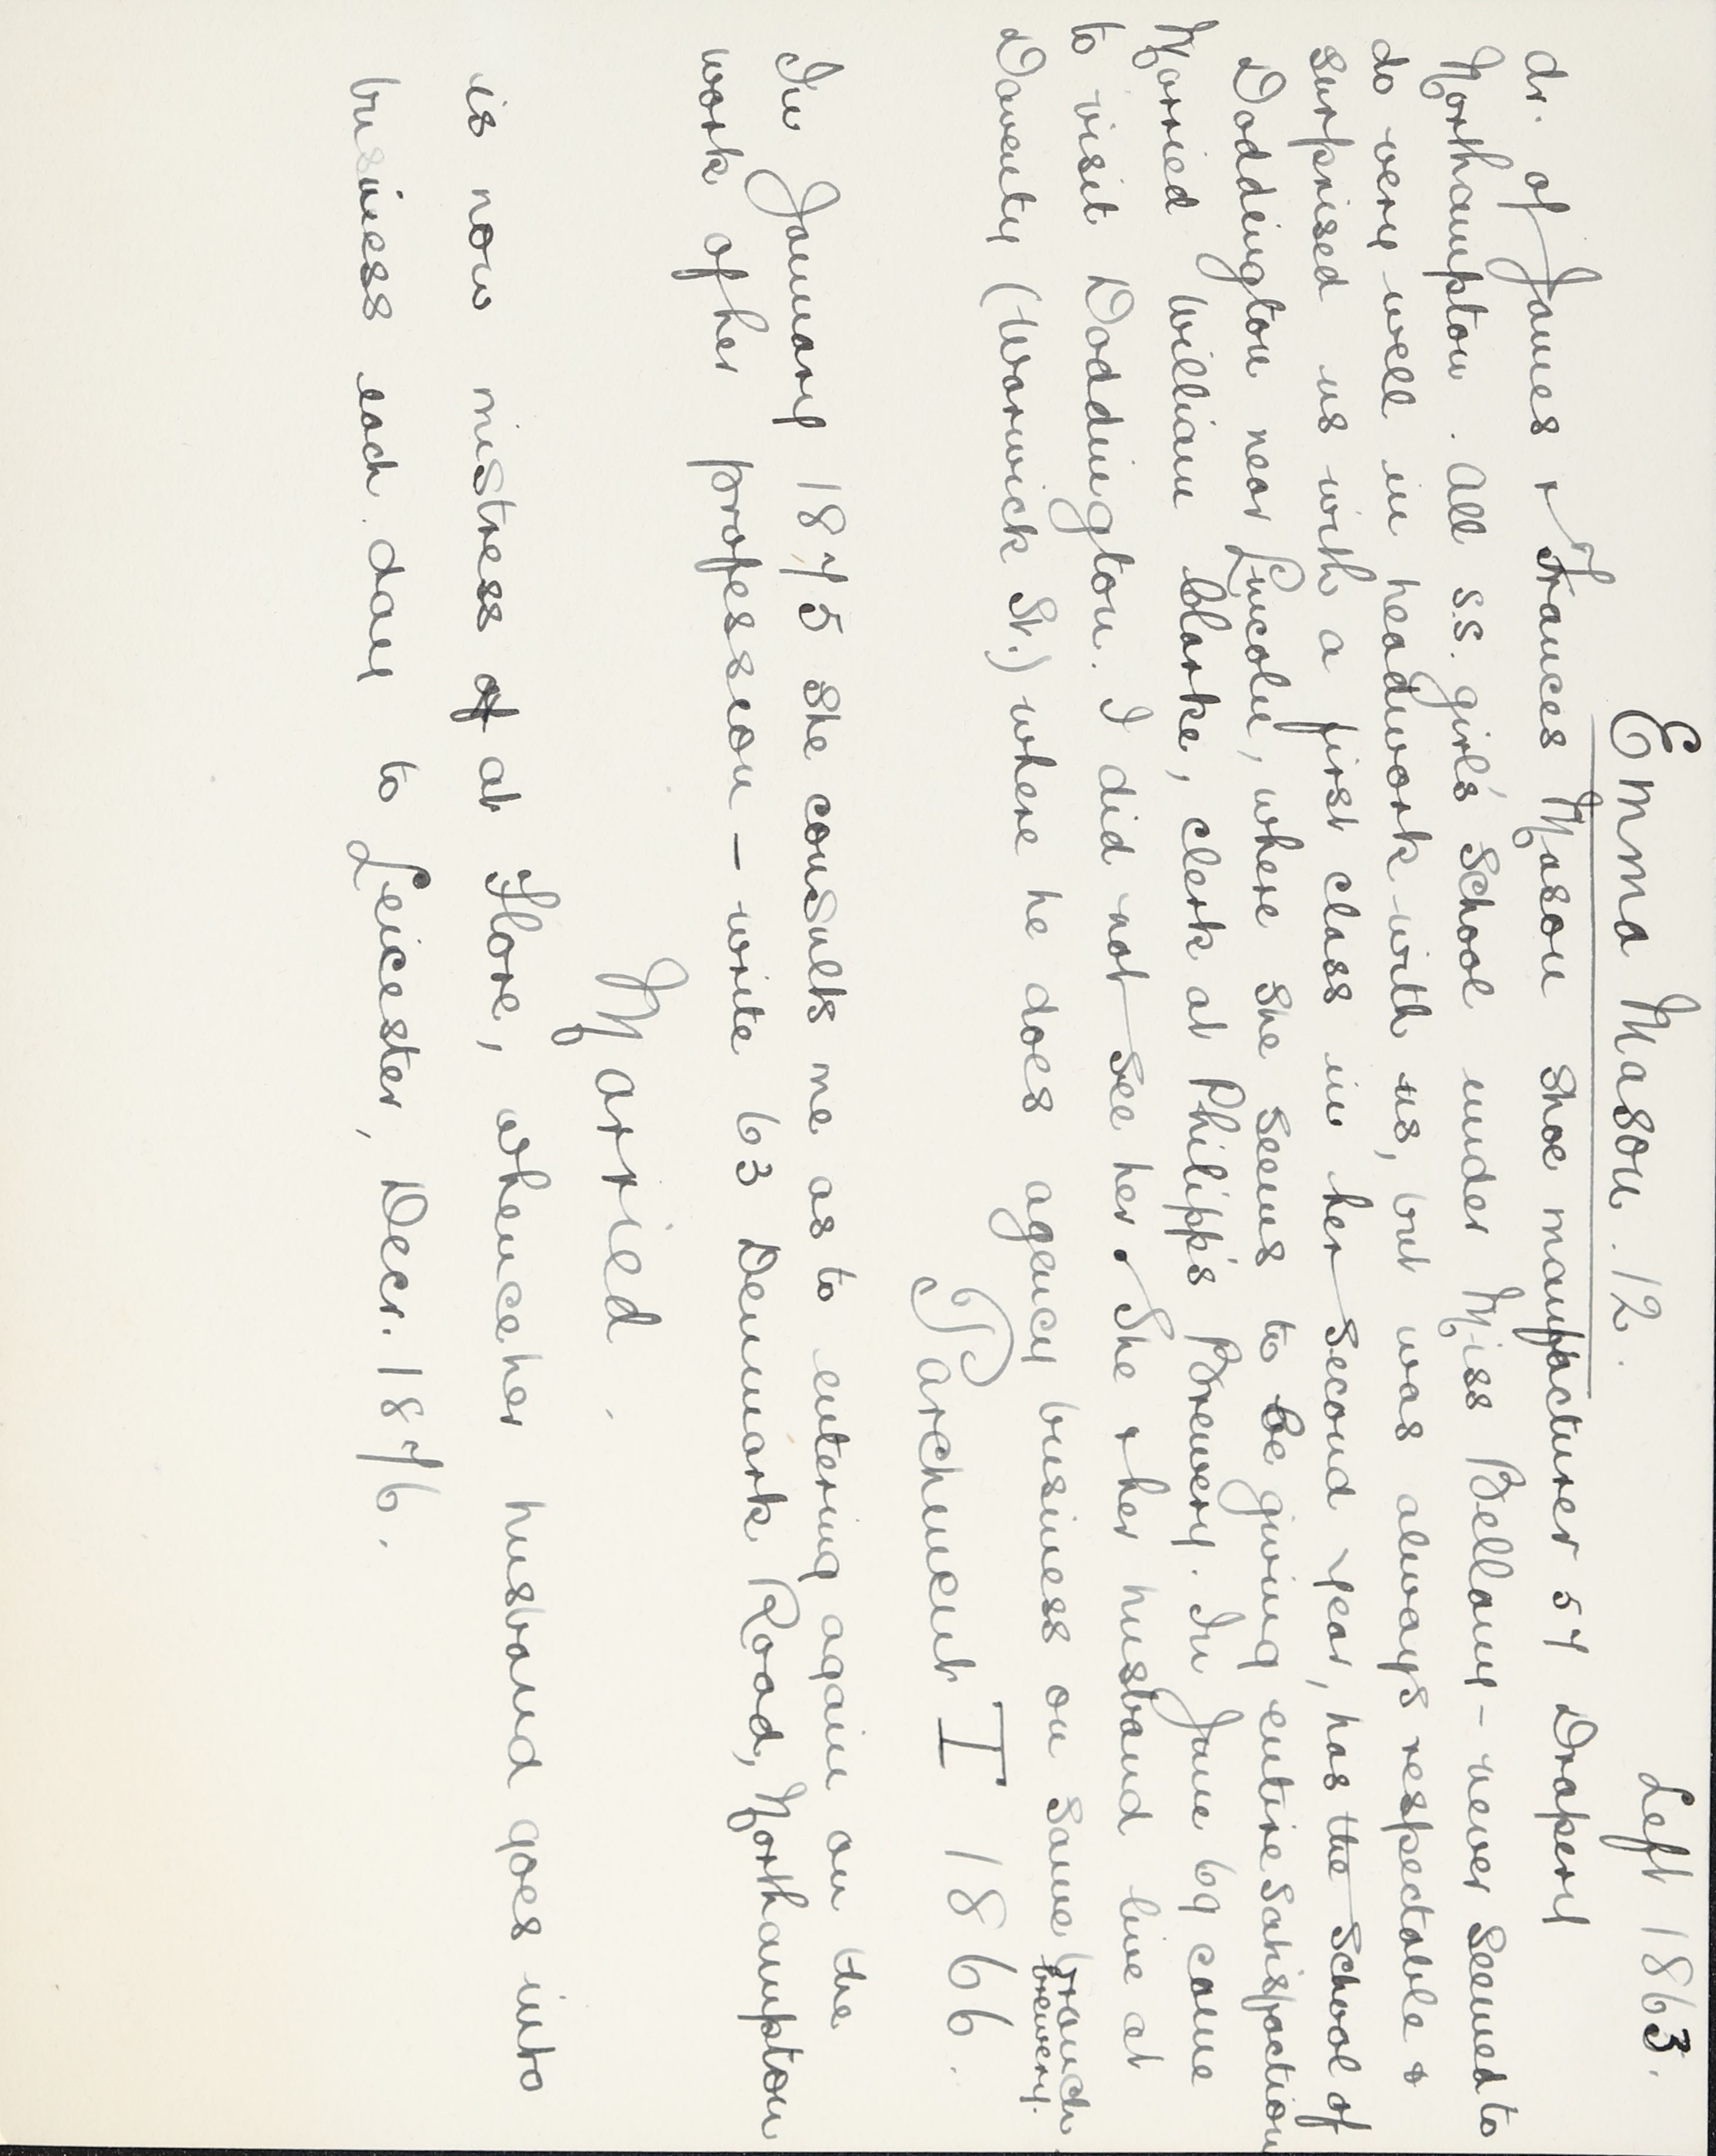 Emma Mason. 12. Left 1863.
dr. of James & Frances Mason shoe manufacturer 57 Drapery
Northampton. All S.S. girl's School under Miss Bellamy - never seemed to
do very well in headwork with us, but was always respectable &
surprised us with a first class in her second year, has the School of
Doddington near Lincoln, where she seems to be giving entire satisfaction
Married William Clarke, clerk at Philipp's Brewery. In June 69 came
to visit Doddington. I did not see her. She & her husband live at
Daventy (Warwick St.) where he does agency business on same branch
brewery.
Parchment I 1866.
In January 1875 she consults me as to entering again on the
work of her profession - write 63 Denmark Road, Northampton
Married.
is now mistress of at Flore, whence her husband goes into
business each day to Leicester, Decr. 1876.